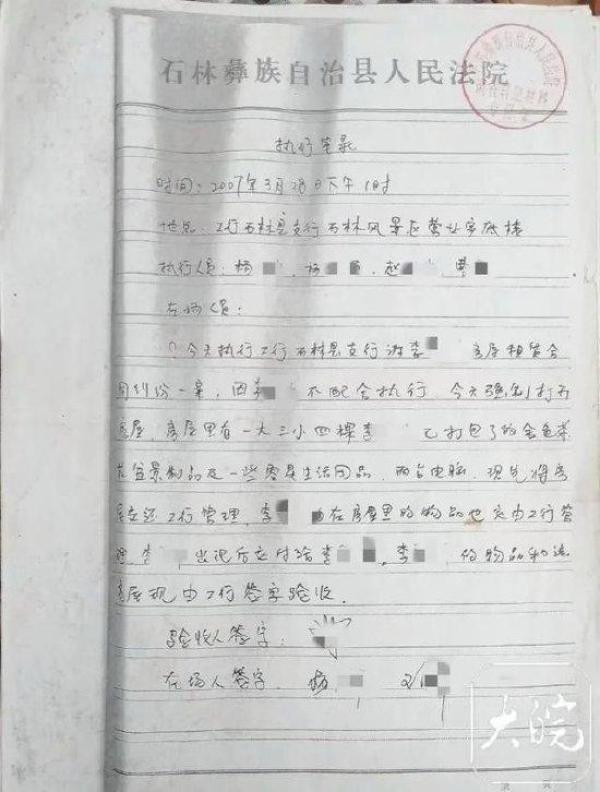 石林彝族自治县人民法院
执行笔录
时间：2007年3月28日下午1时
地点：工行石林县支行石林风景区营业室底楼
执行人员：杨 、杨 、赵 、
在场人员：
今天执行工行石林县支行诉李 房屋租赁合
同纠纷一案，因李 不配合执行，今天强制打开
房屋，房屋里有一大三小四棵李 已打包了的
盆景制品及一些家具生活用品，两台电脑，现先将房
屋交还工行管理，李 在房屋里的物品也交由工行管
理，李 出现后交付给李 ，李 的物品和该
房屋现由工行签字验收。
验收人签字：
在场人签字： 杨
大皖